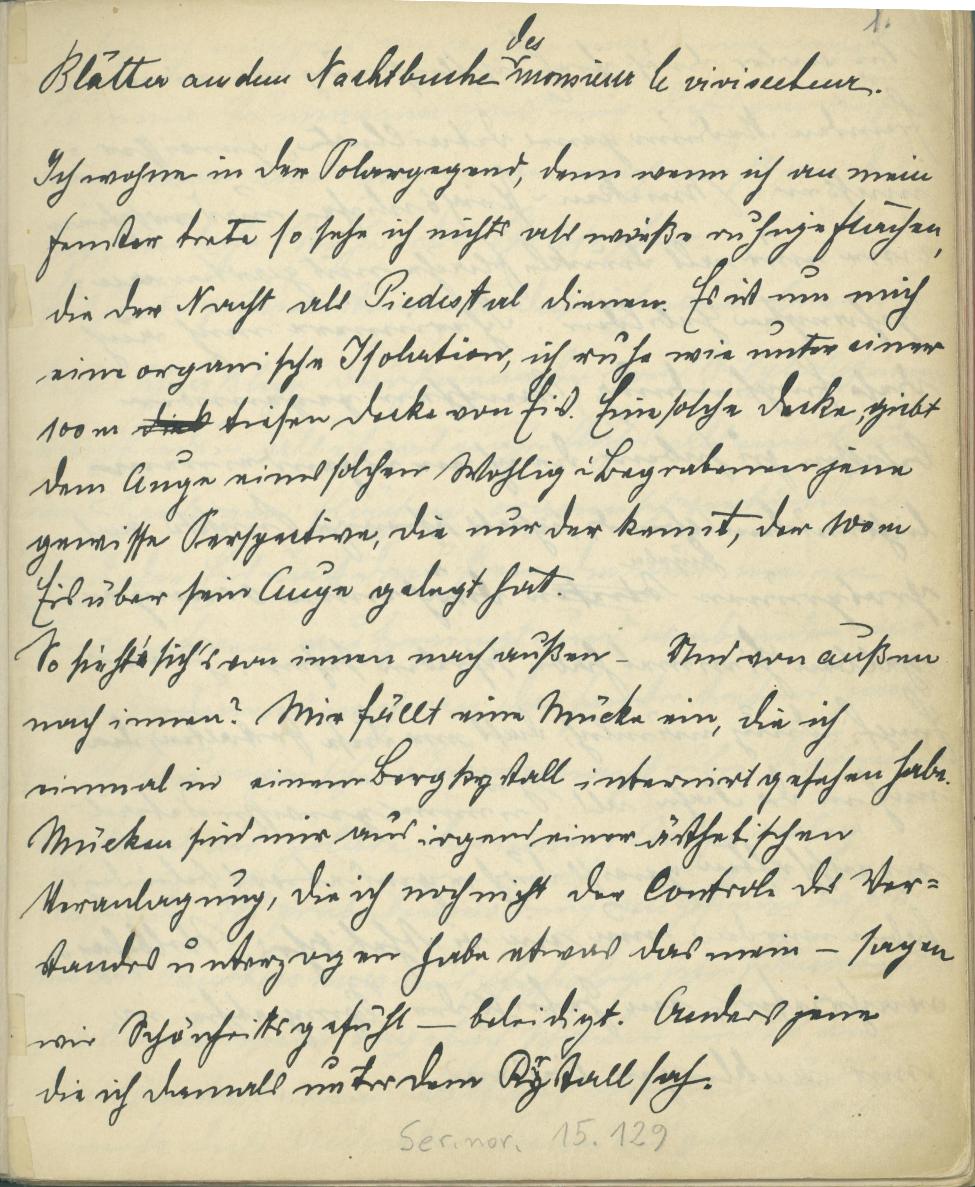 1.
des
Blätter aus dem Nachtbuche monsieur le vivisecteur.
Ich wohne in der Polargegend, denn wenn ich an mein
Fenster trete so sehe ich nichts als weiße ruhige Flächen,
die der Nacht als Piedestal dienen. Es ist um mich
eine organische Isolation, ich ruhe wie unter einer
100 m tiefen Decke von Eis. Eine solche Decke, giebt
dem Auge eines solchen Wohlig i Begrabenen jene
gewisse Perspective, die nur der kennt, der 100 m
Eis über sein Auge gelegt hat.
So sieht sich's von innen nach außen – Und von außen
nach innen? Mir fällt eine Mücke ein, die ich
einmal in einem Bergkrystall internirt gesehen habe.
Mücken sind mir aus irgend einer ästhetischen
Veranlagung, die ich noch nicht der Controle des Ver=
standes unterzogen habe etwas das mein – sagen
wir Schönheitsgefühl – beleidigt. Anders jene
die ich damals unter dem Krystall sah.
Ser. nov. 15.129